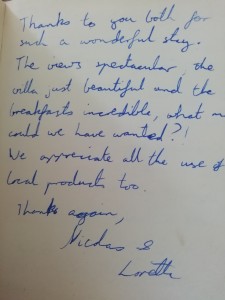 Thanks to you both for
such a wonderful stay.
The views spectacular, the
villa just beautiful and the
breakfasts incredible, what
could we have wanted?!
We appreciate all the use of
local products too.
Thanks again,
Nicolas &
Lorette